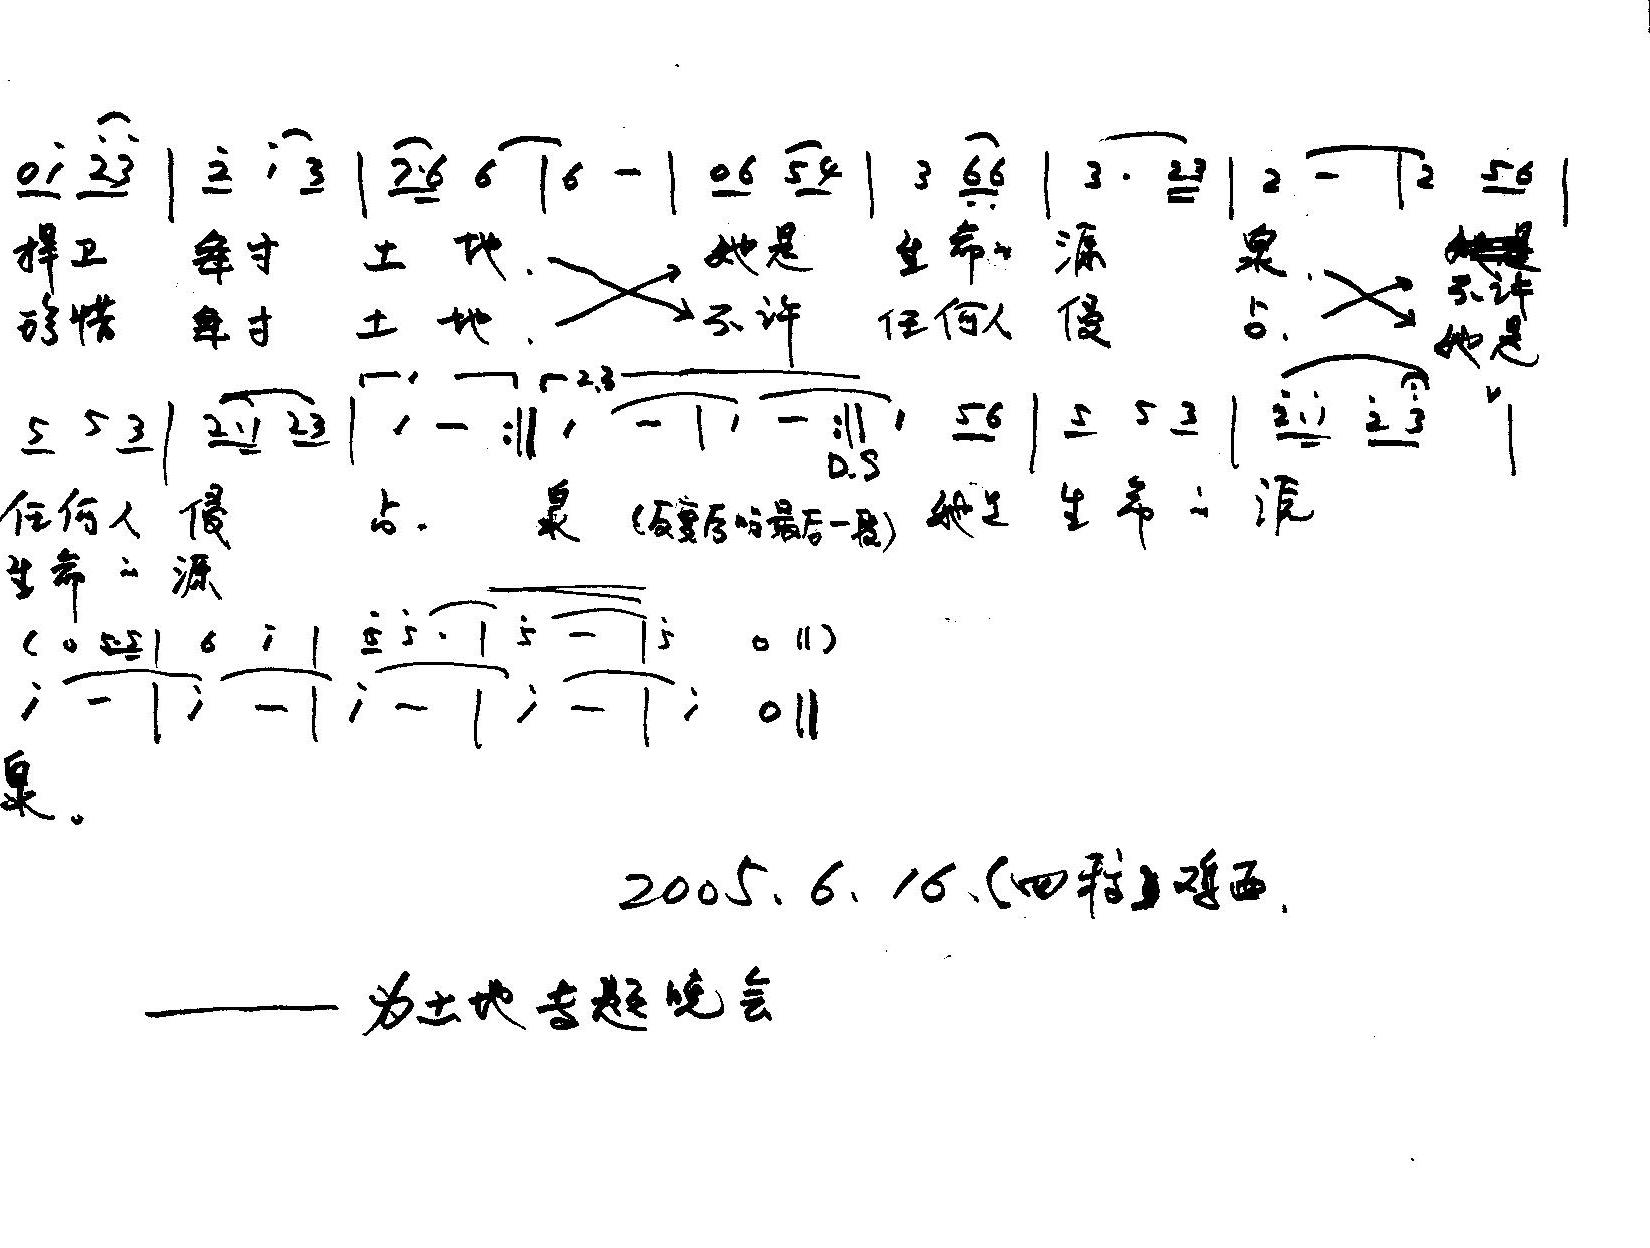 0 i 2 3 | 2 i 3 | 2·6 6 | 6 - | 0 6 5 4 | 3 6 6 | 3 · 2 3 | 2 - | 2 5 6 |
捍卫 每寸 土 地. 她是 生命的 源 泉. 不许
珍惜 每寸 土 地. 不许 任何人 侵 占. 她是
1. 2.3
5 5 3 | 2·1 2 3 | 1 - :‖ 1 - | 1 - :‖ 1 5 6 | 5 5 3 | 2·1 2 3 |
D.S
任何人 侵 占. 泉 (反复后唱最后一段) 她是 生命的源
生命的源
( 0 5 5 | 6 i | 5 5 · | 5 - | 5 0 ‖ )
i - | i - | i - | i - | i 0 ‖
泉。
2005.6.16.(四稿)鸡西.
—— 为土地专题晚会